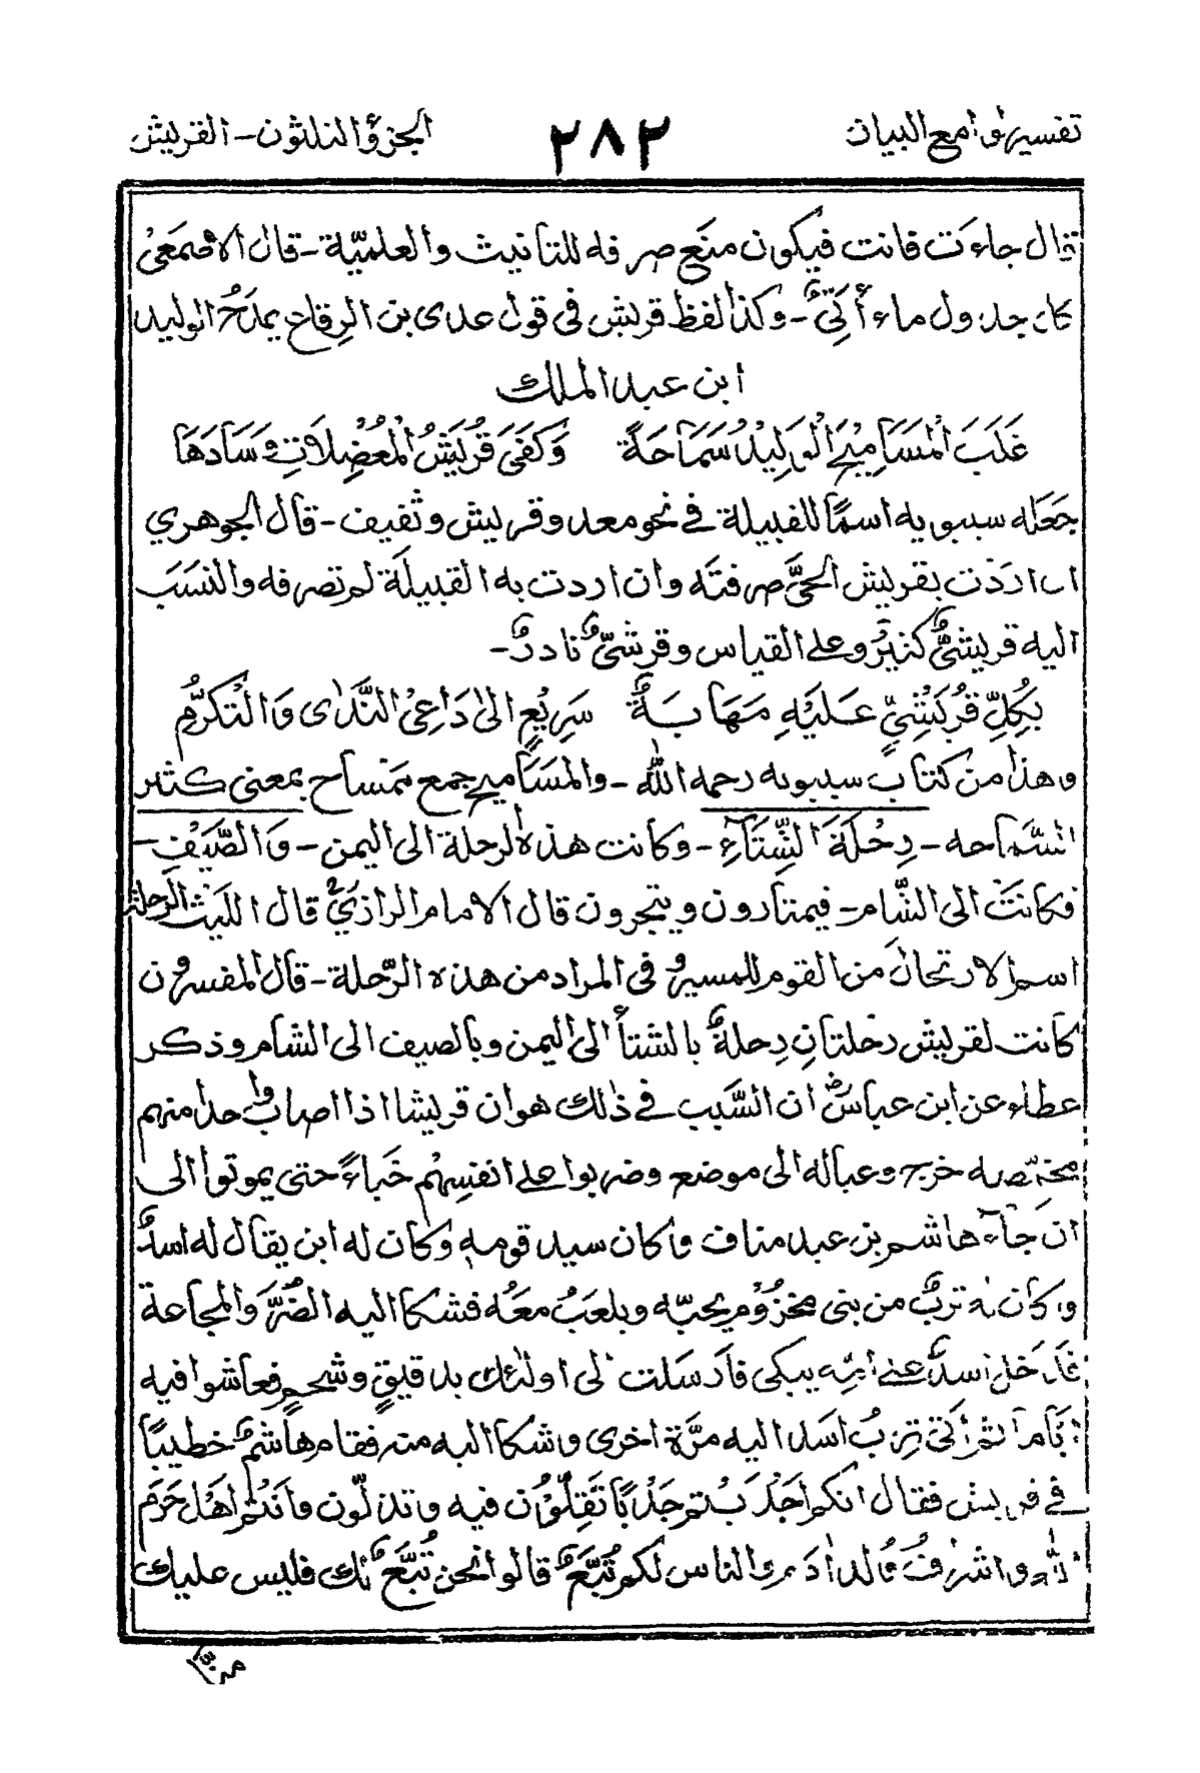 تفسير لوامع البيان
٢٨٢
الجزؤ الثلثون - القريش
قال جاءت قانت فيكون منَع صرفه للتانيث والعلميّة - قال الاصمَعىُ
جدول ماء أُتِىٌّ - وكذا لفظ قريش فى قول عدى بن الرِقاع يمدَحُ الوليد
ابن عبد الملك
غَلَبَ الْمَسَامِيْحَ الْوَلِيْدُ سَمَاحَةً وَكَفَىٰ قُرَيْشُ الْمُعْضِلَاتِ وَسَادَهَا
جَعَله سيبويه اسمًا للقبيلة فے نحو معد وقريش وثقيف - قال الجوهري
ان اردْت بقريش الحىَّ صرفتَه وان اردت به القبيلَة لم تصرفه والنسَبَ
اليه قريشىٌّ كثيرٌ وعلى القياس وقرشىٌّ نادرٌ -
بِكُلِّ قُرَيْشِيٍّ عَلَيْهِ مَهَابَةٌ سَرِيْعٍ الىٰ دَاعِىْ النَّدٰى وَالتَّكَرُّمِ
وهذا من كتاب سيبويه رحمه اللّٰه - والمَسَاميح جمع مِمْساح بمعنى كثير
السَّماحه - رِحْلَةَ الشِّتَآءِ - وكانت هذه الرحلة الى اليمن - وَالصَّيْفِ -
فكانَتْ الى الشّام - فيمتارون ويتجرون قال الامام الرازىؒ قال الليث الرحلة
اسم الارتحال من القوم للمسير وفى المراد من هذه الرّحلة - قال المفسرون
كانت لقريش رحلتانِ رِحلةٌ بالشتأ الى اليمن وبالصيف الى الشام وذكر
عطاء عن ابن عباسؓ ان السَّبب فے ذلك هو ان قريشا اذا اصاب واحدا منهم
مخمَصه خرج وعياله الى موضع وضربوا على انفسِهُم خَباءً حتى يموتوا الى
ان جَآءَ هاشم بن عبد مناف وكان سيد قومه وكان له ابن يقال له اسدٌ
وكان له تربٌ من بنى مخزُوْمٍ يحبّه ويلعَبُ معَه فشكا اليه الضُّرَّ والمجاعة
فدَخل اسدٌ علے امّه يبكى فارسَلت الى اولئك بدقيقٍ وشحمٍ فعاشوا فيه
ايّاما ثم أتى تِربُ اسد اليه مرَّة اخرى وشكا اليه منه فقام هاشمٌ خطيبًا
فے قريش فقال انكم اجْدَبْتم جَدْبًا تَقِلُّوْن فيه وتذلّون وانتُم اهْل حَرَم
اللّٰه واشرفُ وُلد ادَم والناس لكم تُبَّعٌ قالوا نحن تُبَّعٌ لك فليس عليك